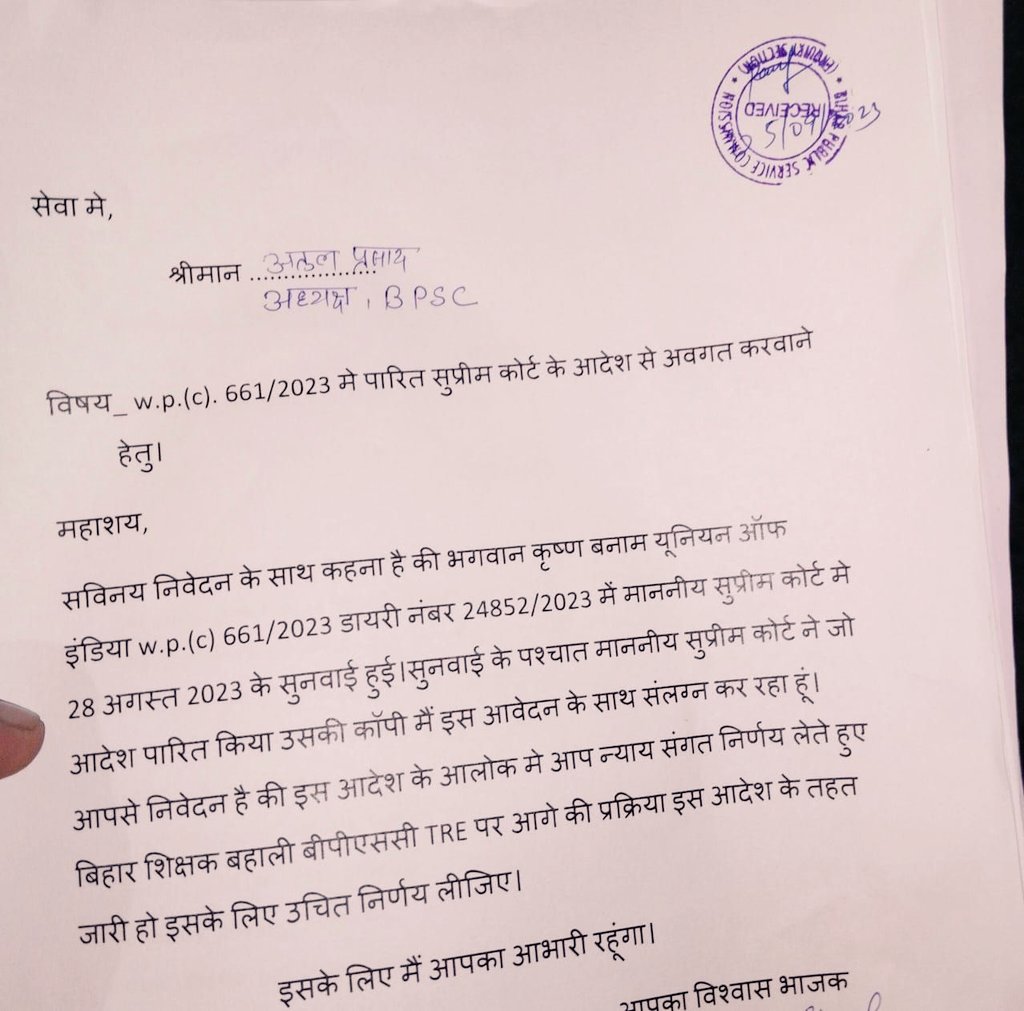 BIHAR PUBLIC SERVICE COMMISSION
(ENQUIRY SECTION)
RECEIVED
5/09/2023
सेवा मे,
श्रीमान ..................अतुल प्रसाद
अध्यक्ष, BPSC
विषय_ w.p.(c). 661/2023 मे पारित सुप्रीम कोर्ट के आदेश से अवगत करवाने
हेतु।
महाशय,
सविनय निवेदन के साथ कहना है की भगवान कृष्ण बनाम यूनियन ऑफ
इंडिया w.p.(c) 661/2023 डायरी नंबर 24852/2023 में माननीय सुप्रीम कोर्ट मे
28 अगस्त 2023 के सुनवाई हुई।सुनवाई के पश्चात माननीय सुप्रीम कोर्ट ने जो
आदेश पारित किया उसकी कॉपी मैं इस आवेदन के साथ संलग्न कर रहा हूं।
आपसे निवेदन है की इस आदेश के आलोक मे आप न्याय संगत निर्णय लेते हुए
बिहार शिक्षक बहाली बीपीएससी TRE पर आगे की प्रक्रिया इस आदेश के तहत
जारी हो इसके लिए उचित निर्णय लीजिए।
इसके लिए मैं आपका आभारी रहूंगा।
आपका विश्वास भाजक